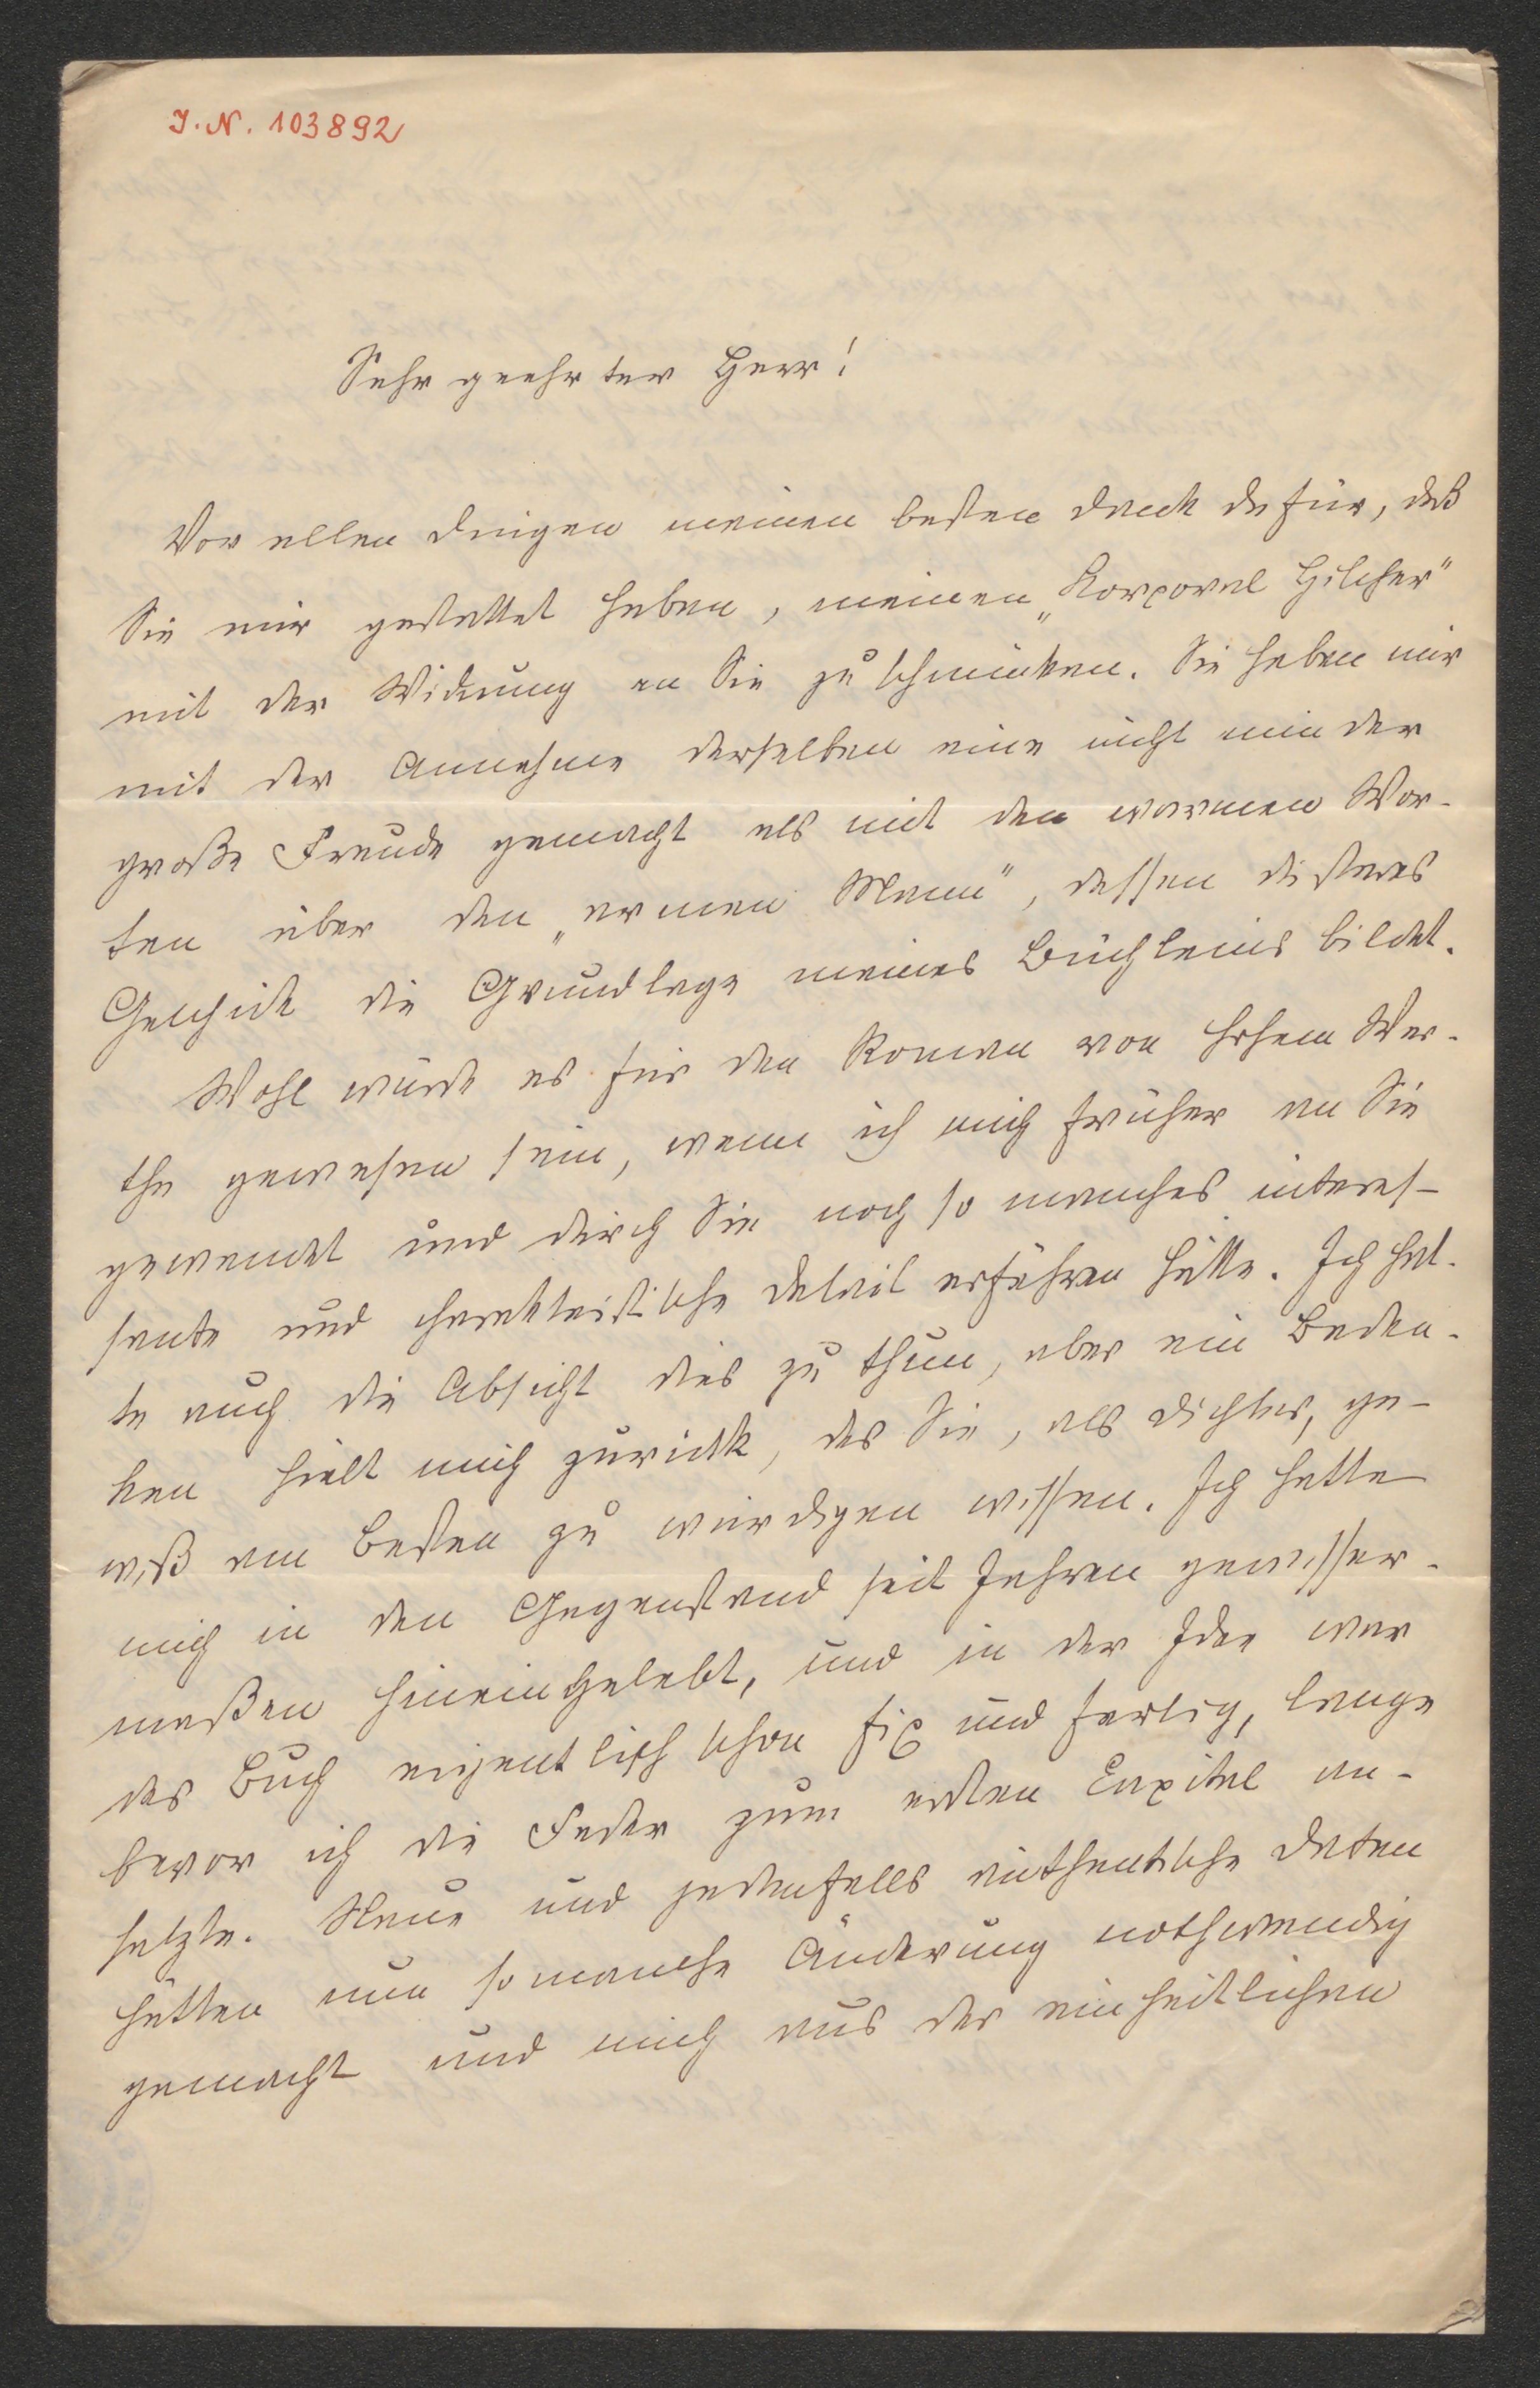 J. N. 103892
Sehr geehrter Herr!
Vor allen Dingen meinen besten Dank dafür, daß
Sie mir gestattet haben, meinen „Korporal Hilcher"
mit der Widmung an Sie zu schmücken. Sie haben mir
mit der Annahme derselben eine nicht minder
große Freude gemacht als mit den warmen Wor-
ten über den „armen Mann", dessen düsteres
Geschick die Grundlage meines Büchleins bildet.
Wohl würde es für den Roman von hohem Wer-
the gewesen sein, wenn ich mich früher an Sie
gewendet und durch Sie noch so manches interes-
sante und charakteristische Detail erfahren hätte. Ich hat-
te auch die Absicht dies zu thun, aber ein Beden-
ken hielt mich zurück, das Sie, als Dichter, ge-
wiß am Besten zu würdigen wissen. Ich hatte
mich in den Gegenstand seit Jahren gewisser-
maßen hineingelebt, und in der Idee war
das Buch eigentlich schon fix und fertig, lange
bevor ich die Feder zum ersten Capitel an-
setzte. Neue und jedenfalls authentische Daten
hätten nun so manche Änderung nothwendig
gemacht und mich aus der einheitlichen